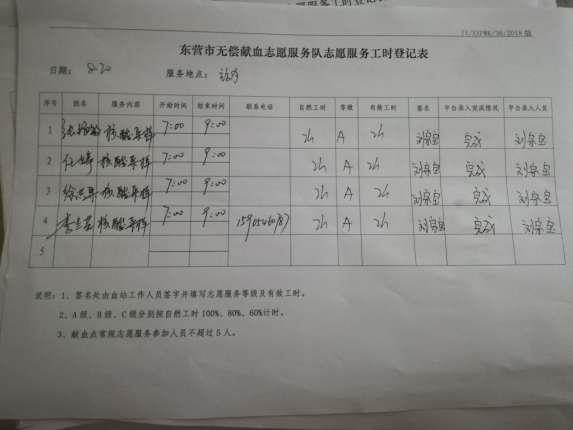 东营市无偿献血志愿服务队志愿服务工时登记表
日期: 8.20 服务地点:
序号 姓名 服务内容 开始时间 结束时间 联系电话 自然工时 等级 有效工时 签名 平台录入完成情况 平台录入人员
1 核酸采样 7:00 9:00 2h A 2h 刘宗宝 完成 刘宗宝
2 核酸采样 7:00 9:00 2h A 2h 刘宗宝 完成 刘宗宝
3 核酸采样 7:00 9:00 2h A 2h 刘宗宝 完成 刘宗宝
4 核酸采样 7:00 9:00 2h A 2h 刘宗宝 完成 刘宗宝
5
说明:1、签名处由血站工作人员签字并填写志愿服务等级及有效工时。
2、A 级、B 级、C 级分别按自然工时 100%、80%、60%计时。
3、献血点常规志愿服务参加人员不超过 5 人。